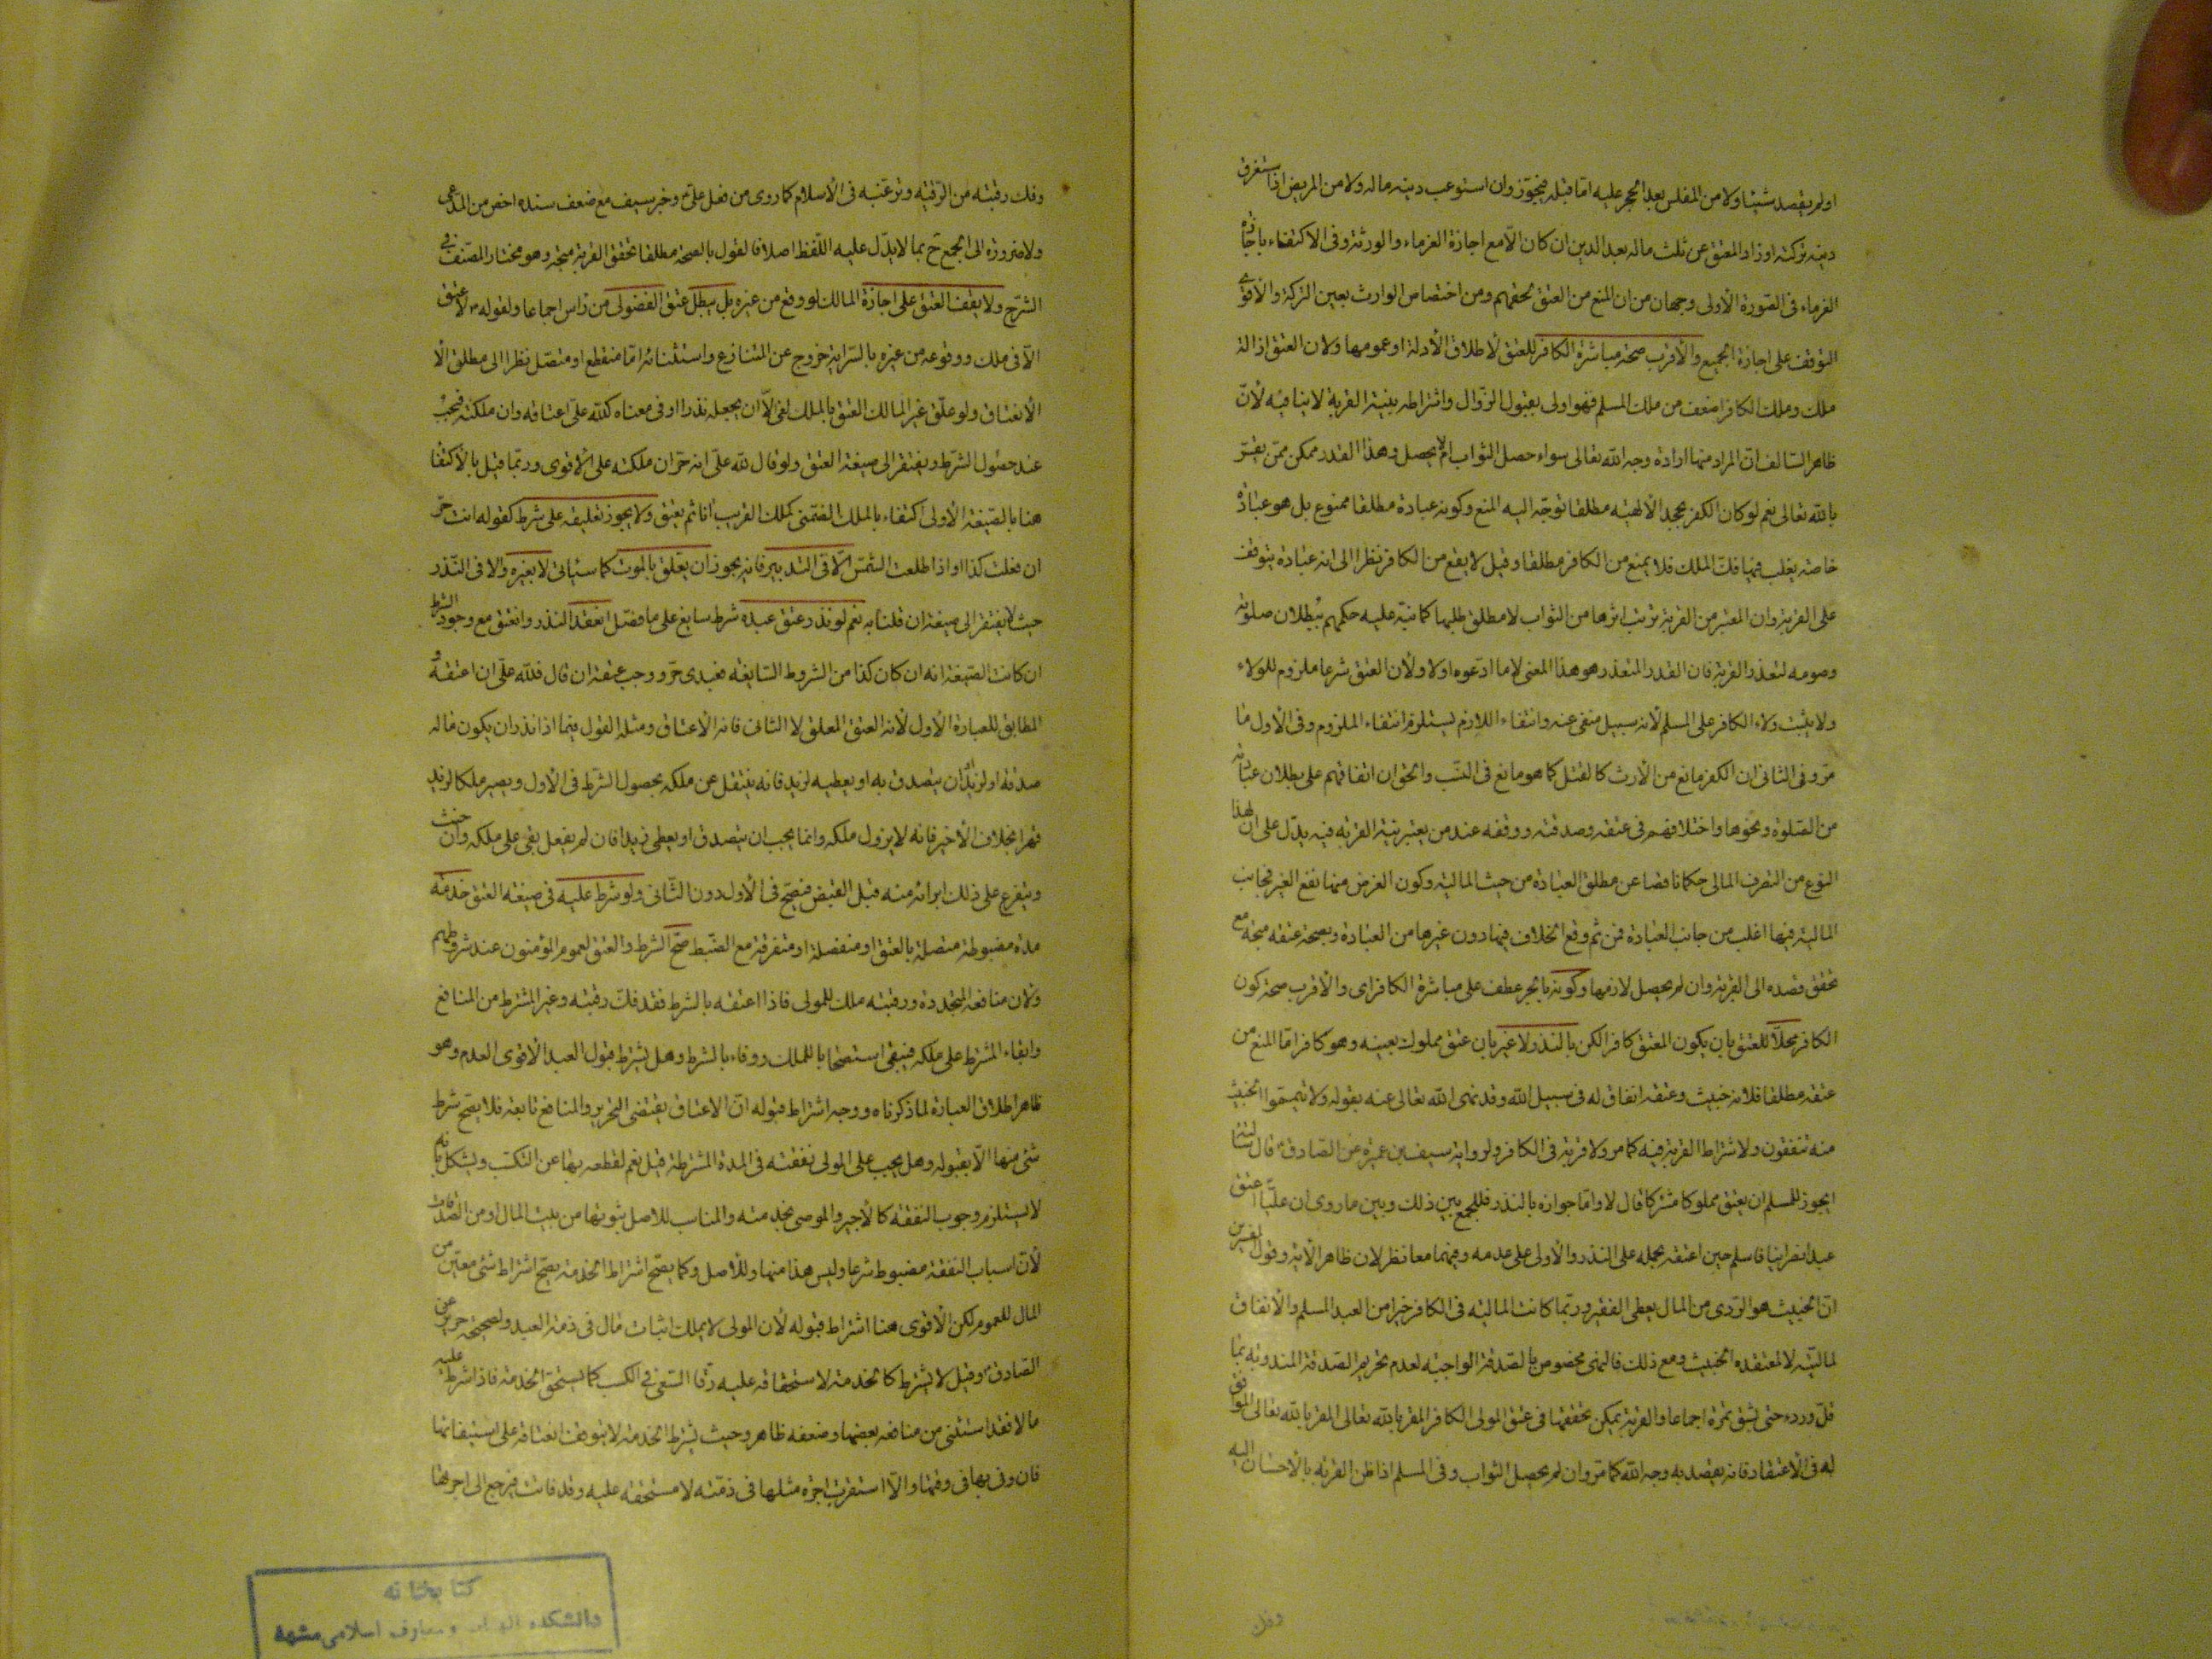 او لم يقصد شيئا ولا من المفلس بعد الحجر عليه اما قبله فيجوز وان استوعب دينه ماله ولا من المريض اذا استغرق
دينه تركته او زاد المعتق عن ثلث ماله بعد الدين ان كان الا مع اجازة الغرماء والورثة وفى الاكتفاء باجازة
الغرماء فى الصورة الاولى وجهان من ان المنع من العتق لحقهم ومن اختصاص الوارث بعين التركة والاقوى
التوقف على اجازة الجميع والاقرب صحة مباشرة الكافر للعتق لاطلاق الادلة او عمومها ولان العتق ازالة
ملك وملك الكافر اضعف من ملك المسلم فهو اولى بقبول الزوال واشتراطه بنية القربة لا ينافيه لان
ظاهر السالف ان المراد منها ارادة وجه الله تعالى سواء حصل الثواب ام لا يحصل وهذا القدر ممكن ممن يقر
بالله تعالى نعم لو كان الكفر بجحد الالهية مطلقا توجه اليه المنع وكونه عبادة مطلقا ممنوع بل هو عبادة
خاصة يغلب فيها فك الملك فلا يمتنع من الكافر مطلقا وقيل لا يقع من الكافر نظرا الى انه عبادة يتوقف
على القربة وان المعتبر من القربة ترتب اثرها من الثواب لا مطلق طلبها كما نبه عليه حكمهم ببطلان صلوته
وصومه لتعذر القربة فان القدر المتعذر هو هذا المعنى لا ما ادعوه اولا ولان العتق شرعا ملزوم للولاء
ولا يثبت ولاء الكافر على المسلم لانه سبيل منفى عنه وانتفاء اللازم يستلزم انتفاء الملزوم وفى الاول ما
مر وفى الثانى ان الكفر مانع من الارث كالقتل كما هو مانع فى النسب والحق ان اتفاقهم على بطلان عباداته
من الصلوة ونحوها واختلافهم فى عتقه وصدقته ووقفه عند من يعتبر نية القربة فيه يدل على ان لهذا
النوع من التصرف المالى حكما ناقصا عن مطلق العبادة من حيث المالية وكون الغرض منها نفع الغير فجانب
المالية فيها اغلب من جانب العبادة فمن ثم وقع الخلاف فيها دون غيرها من العبادة وبصحة عتقه متجه مع
تحقق قصده الى القربة وان لم يحصل لازمها وكونه بالجر عطف على مباشرة الكافر اى والاقرب صحة كون
الكافر محلا للعتق بان يكون المعتق كافرا لكن بالنذر لا غير بان عتق مملوك بعينه وهو كافر اما المنع من
عتقه مطلقا فلانه خبيث وعتقه انفاق له فى سبيل الله وقد نهى الله تعالى عنه بقوله ولا تيمموا الخبيث
منه تنفقون ولاشتراط القربة فيه كما مر ولا قربة فى الكافر ولرواية سيف بن عميرة عن الصادق ع قال سالته
ايجوز للمسلم ان يعتق مملوكا مشركا قال لا واما جوازه بالنذر فللجمع بين ذلك وبين ما روى ان عليا اعتق
عبدا نصرانيا فاسلم حين اعتقه بحمله على النذر والاولى على عدمه وفيهما معا نظر لان ظاهر الاية وقول المفسرين
ان الخبيث هو الردى من المال يعطى الفقير وربما كانت المالية فى الكافر خيرا من العبد المسلم والانفاق
لماليته لا لمعتقده الخبيث ومع ذلك فالنهى مخصوص بالصدقة الواجبة لعدم تحريم الصدقة المندوبة بما
قل وردء حتى بشق تمرة اجماعا والقربة يمكن تحققها فى عتق المولى الكافر المقر بالله تعالى المقر بالله تعالى الموافق
له فى الاعتقاد فانه يقصد به وجه الله كما مر وان لم يحصل الثواب وفى المسلم اذا ظن القربة بالاحسان اليه
وفك
وفك رقبته من الرقية وترغيبه فى الاسلام كما روى من فعل على ع وخبر سيف مع ضعف سنده اخص من المدعى
ولا ضرورة الى الجمع ح بما لا يدل عليه اللفظ اصلا فالقول بالصحة مطلقا مع تحقق القربة متجه وهو مختار المصنف فى
الشرح ولا يقف العتق على اجازة المالك لو وقع من غيره بل يبطل عتق الفضولى من راس اجماعا ولقوله ص لا عتق
الا فى ملك ووقوعه من غيره بالسراية خروج عن المتنازع واستثنائه اما منقطع او متصل نظرا الى مطلق الا
الانعتاق ولو علق غير المالك العتق بالملك لغى الا ان يجعله نذرا او فى معناه كلله على اعتاقه وان ملكته فيجب
عند حصول الشرط ويفتقر الى صيغة العتق ولو قال لله على انه حر ان ملكته على الاقوى وربما قيل بالاكتفا
هنا بالصيغة الاولى اكتفاء بالملك الضمنى كملك القريب انا ثم يعتق ولا يجوز تعليقه على شرط كقوله انت حر
ان فعلت كذا او اذا طلعت الشمس الا فى التدبير فانه يجوز ان يعلق بالموت كما سياتى لا بغيره والا فى النذر
حيث لا يفتقر الى صيغة ان قلنا به نعم لو نذر عتق عبده شرط سايغ على ما فصل انعقد النذر وانعتق مع وجود الشرط
ان كانت الصيغة انه ان كان كذا من الشروط السايغة فعبدى حر ووجب عتقه ان قال فلله على ان اعتقه و
المطابق للعبارة الاول لانه العتق المعلق لا الثانى فانه الاعتاق ومثله القول فيما اذا نذر ان يكون ماله
صدقة او لزيد او ان يتصدق به او يعطيه لزيد فانه ينتقل عن ملكه بحصول الشرط فى الاول ويصير ملكا لزيد
قهرا بخلاف الاخير فانه لا يزول ملكه وانما يجب ان يتصدق او يعطى زيدا فان لم يفعل بقى على ملكه وان حنث
ويتفرع على ذلك ابرائه منه قبل القبض فيصح فى الاول دون الثانى ولو شرط عليه فى صيغة العتق خدمة
مدة مضبوطة متصلة بالعتق او منفصلة او متفرقة مع الضبط صح الشرط والعتق لعموم المؤمنون عند شروطهم
ولان منافعه المتجددة ورقبته ملك للمولى فاذا اعتقه بالشرط فقد فك رقبته وغير المشترط من المنافع
وابقاء المشترط على ملكه فيبقى استصحابا للملك ووفاء بالشرط وهل يشترط قبول العبد الاقوى العدم وهو
ظاهر اطلاق العبارة لما ذكرناه ووجه اشتراط قبوله ان الاعتاق يقتضى التحرير والمنافع تابعة فلا يصح شرط
شئ منها الا بقبوله وهل يجب على المولى نفقته فى المدة المشترطة قيل نعم لقطعه بها عن التكسب ويشكل بانه
لا يستلزم وجوب النفقة كالاجير والموصى بخدمته والمناسب للاصل ثبوتها من بيت المال او من الصدقات
لان اسباب النفقة مضبوط شرعا وليس هذا منها وللاصل وكما يصح اشتراط الخدمة يصح اشتراط شئ معين من
المال للعموم لكن الاقوى هنا اشتراط قبوله لان المولى لا يملك اثبات مال فى ذمة العبد ولصحيحة حريز عن
الصادق ع وقيل لا يشترط كالخدمة لاستحقاقه عليه رقا السعى فى الكسب كما يستحق الخدمة فاذا شرط عليه
مالا فقد استثنى من منافعه بعضها وضعفه ظاهر وحيث يشترط الخدمة لا يتوقف انعتاقه على استيفائها
فان وفى بها فى وقتها والا استقرت اجرة مثلها فى ذمته لا مستحقة عليه وقد فاتت فيرجع الى اجرتها
كتابخانه
دانشكده الهيات و معارف اسلامى مشهد